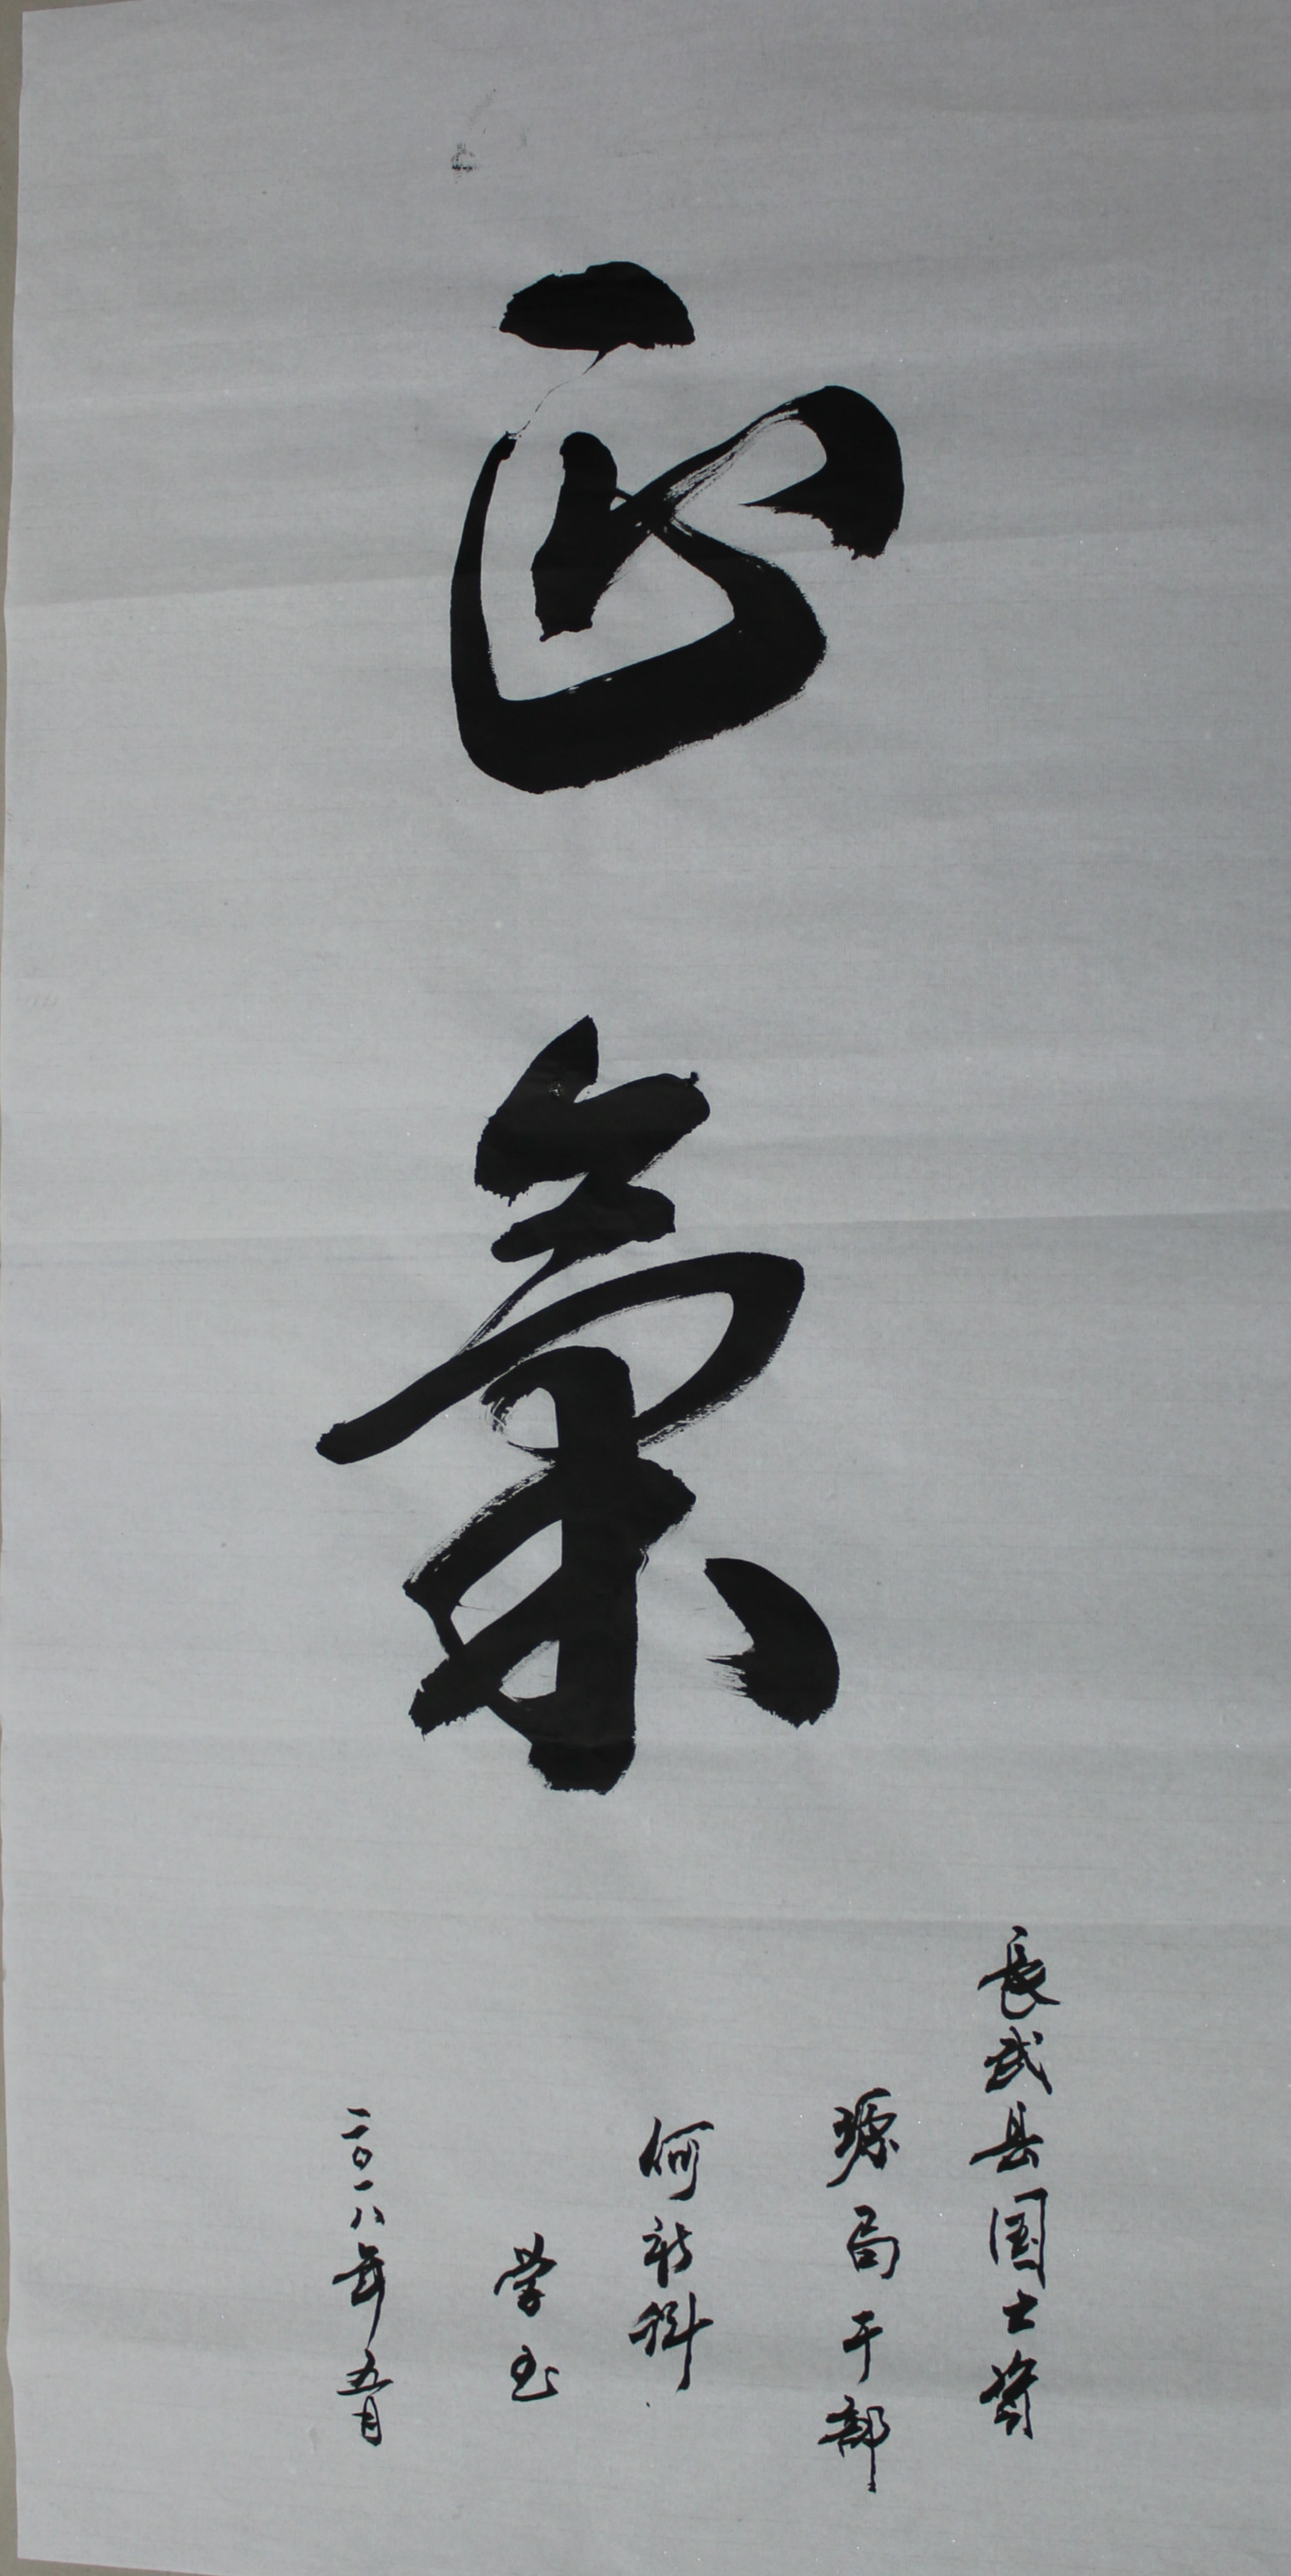 正氣
長武县国土资
源局干部
何新科
学书
二〇一八年五月